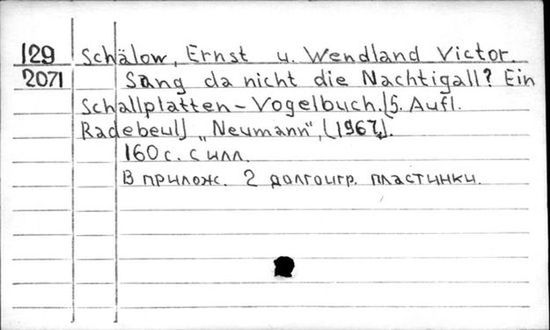 129 Schälow, Ernst u. Wendland Victor.
2071 Sang da nicht die Nachtigall? Ein
Schallplatten-Vogelbuch. [5. Aufl.
Radebeul] „Neumann", [1967].
160 с. с илл.
В прилож. 2 долгоигр. пластинки.